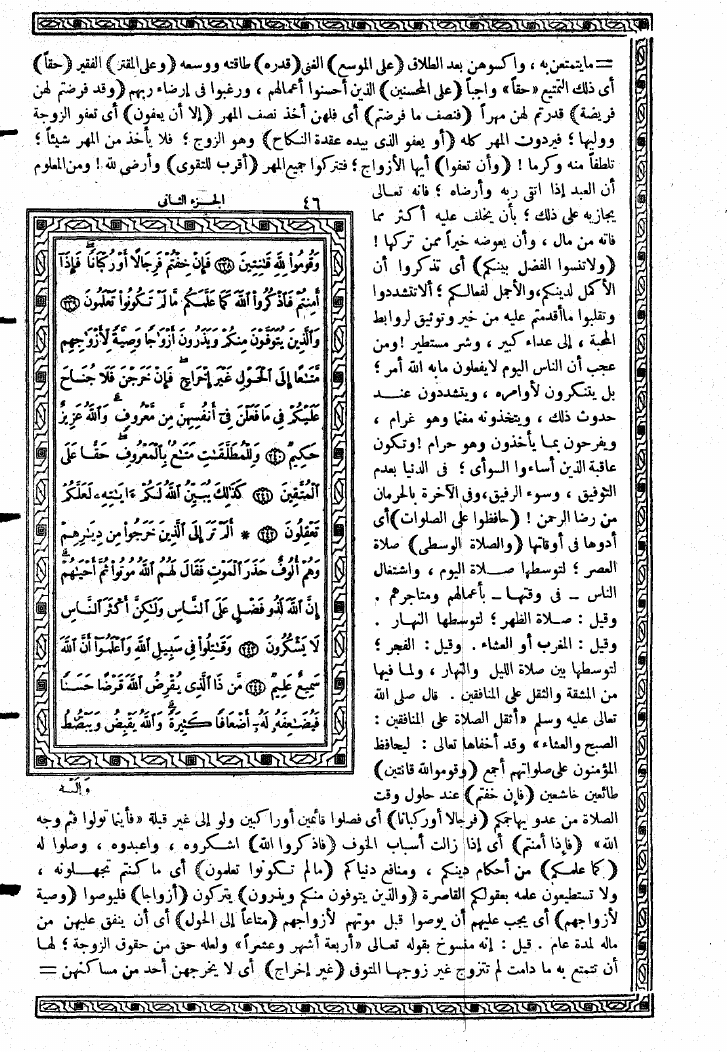 = ما يتمتعن به ، واكسوهن بعد الطلاق (على الموسع) الغنى (قدره) طاقته ووسعه (وعلى المقتر) الفقير (حقاً)
أى ذلك التمتيع «حقاً» واجباً (على المحسنين) الذين أحسنوا أعمالهم ، ورغبوا فى إرضاء ربهم (وقد فرضتم لهن
فريضة) قدرتم لهن مهراً (فنصف ما فرضتم) أى فلهن أخذ نصف المهر (إلا أن يعفون) أى تعفو الزوجة
ووليها ؛ فيردوت المهر كله (أو يعفو الذى بيده عقدة النكاح) وهو الزوج ؛ فلا يأخذ من المهر شيئاً ؛
تلطفاً منه وكرما ! (وأن تعفوا) أيها الأزواج ؛ فتتركوا جميع المهر (أقرب للتقوى) وأرضى لله ! ومن المعلوم
أن العبد إذا اتقى ربه وأرضاه ؛ فانه تعالى
يجازيه على ذلك ؛ بأن يخلف عليه أكثر مما
فاته من مال ، وأن يعوضه خيراً ممن تركها !
(ولا تنسوا الفضل بينكم) أى تذكروا أن
الأكمل لدينكم، والأجمل لفعالكم ؛ ألا تتشددوا
وتقلبوا ما أقدمتم عليه من خير وتوثيق لروابط
المحبة ، إلى عداء كبير ، وشر مستطير ! ومن
عجب أن الناس اليوم لا يفعلون ما به الله أمر ؛
بل يتنكرون لأوامره ، ويتشددون عنـد
حدوث ذلك ، ويتخذونه مغنما وهو غرام ،
ويفرحون بمـا يأخذون وهو حرام ! وتكون
عاقبة الذين أساءوا السوأى ؛ فى الدنيا بعدم
التوفيق ، وسوء الرفيق ، وفى الآخرة بالحرمان
من رضا الرحمن ! (حافظوا على الصلوات) أى
أدوها فى أوقاتها (والصلاة الوسطى) صلاة
العصر ؛ لتوسطها صـلاة اليوم ، واشتغال
الناس ـ فى وقتهـا ـ بأعمالهم ومتاجرهم .
وقيل : صـلاة الظهر ؛ لتوسطها النهار .
وقيل : المغرب أو العشاء . وقيل : الفجر ؛
لتوسطها بين صلاة الليل والنهار ، ولما فيها
من المشقة والثقل على المنافقين . قال صلى الله
تعالى عليه وسلم «أثقل الصلاة على المنافقين :
الصبح والعشاء» وقد أخفاها تعالى : ليحافظ
المؤمنون على صلواتهم أجمع (وقوموا لله قانتين)
طائعين خاشعين (فإن خفتم) عند حلول وقت
الصلاة من عدو يهاجمكم (فرجالا أو ركبانا) أى فصلوا قائمين أو راكبين ولو إلى غير قبلة «فأينما تولوا فثم وجه
الله» (فإذا أمنتم) أى إذا زالت أسباب الخوف (فاذكروا الله) اشـكروه ، واعبدوه ، وصلوا له
(كما علمكم) من أحكام دينكم ، ومنافع دنياكم (مالم تكونوا تعلمون) أى ما كنتم تجهـلونه ،
ولا تستطيعون علمه بعقولكم القاصرة (والذين يتوفون منكم ويذرون) يتركون (أزواجا) فليوصوا (وصية
لأزواجهم) أى يجب عليهم أن يوصوا قبل موتهم لأزواجهم (متاعاً إلى الحول) أى أن ينفق عليهن من
ماله لمدة عام . قيل : إنه منسوخ بقوله تعـالى «أربعة أشهر وعشراً» ولعله حق من حقوق الزوجة ؛ لهـا
أن تتمتع به ما دامت لم تتزوج غير زوجهـا المتوفى (غير إخراج) أى لا يخرجهن أحد من مساكنهن =
٤٦ الجزء الثانى
وَقُومُوا۟ لِلَّهِ قَـٰنِتِينَ ٢٣٨ فَإِنْ خِفْتُمْ فَرِجَالًا أَوْ رُكْبَانًا ۖ فَإِذَآ
أَمِنتُمْ فَٱذْكُرُوا۟ ٱللَّهَ كَمَا عَلَّمَكُم مَّا لَمْ تَكُونُوا۟ تَعْلَمُونَ ٢٣٩
وَٱلَّذِينَ يُتَوَفَّوْنَ مِنكُمْ وَيَذَرُونَ أَزْوَٰجًا وَصِيَّةً لِّأَزْوَٰجِهِم
مَّتَـٰعًا إِلَى ٱلْحَوْلِ غَيْرَ إِخْرَاجٍ ۚ فَإِنْ خَرَجْنَ فَلَا جُنَاحَ
عَلَيْكُمْ فِى مَا فَعَلْنَ فِىٓ أَنفُسِهِنَّ مِن مَّعْرُوفٍ ۗ وَٱللَّهُ عَزِيزٌ
حَكِيمٌ ٢٤٠ وَلِلْمُطَلَّقَـٰتِ مَتَـٰعٌۢ بِٱلْمَعْرُوفِ ۖ حَقًّا عَلَى
ٱلْمُتَّقِينَ ٢٤١ كَذَٰلِكَ يُبَيِّنُ ٱللَّهُ لَكُمْ ءَايَـٰتِهِۦ لَعَلَّكُمْ
تَعْقِلُونَ ٢٤٢ * أَلَمْ تَرَ إِلَى ٱلَّذِينَ خَرَجُوا۟ مِن دِيَـٰرِهِمْ
وَهُمْ أُلُوفٌ حَذَرَ ٱلْمَوْتِ فَقَالَ لَهُمُ ٱللَّهُ مُوتُوا۟ ثُمَّ أَحْيَـٰهُمْ ۚ
إِنَّ ٱللَّهَ لَذُو فَضْلٍ عَلَى ٱلنَّاسِ وَلَـٰكِنَّ أَكْثَرَ ٱلنَّاسِ
لَا يَشْكُرُونَ ٢٤٣ وَقَـٰتِلُوا۟ فِى سَبِيلِ ٱللَّهِ وَٱعْلَمُوٓا۟ أَنَّ ٱللَّهَ
سَمِيعٌ عَلِيمٌ ٢٤٤ مَّن ذَا ٱلَّذِى يُقْرِضُ ٱللَّهَ قَرْضًا حَسَنًا
فَيُضَـٰعِفَهُۥ لَهُۥٓ أَضْعَافًا كَثِيرَةً ۚ وَٱللَّهُ يَقْبِضُ وَيَبْصُۜطُ
وإليه